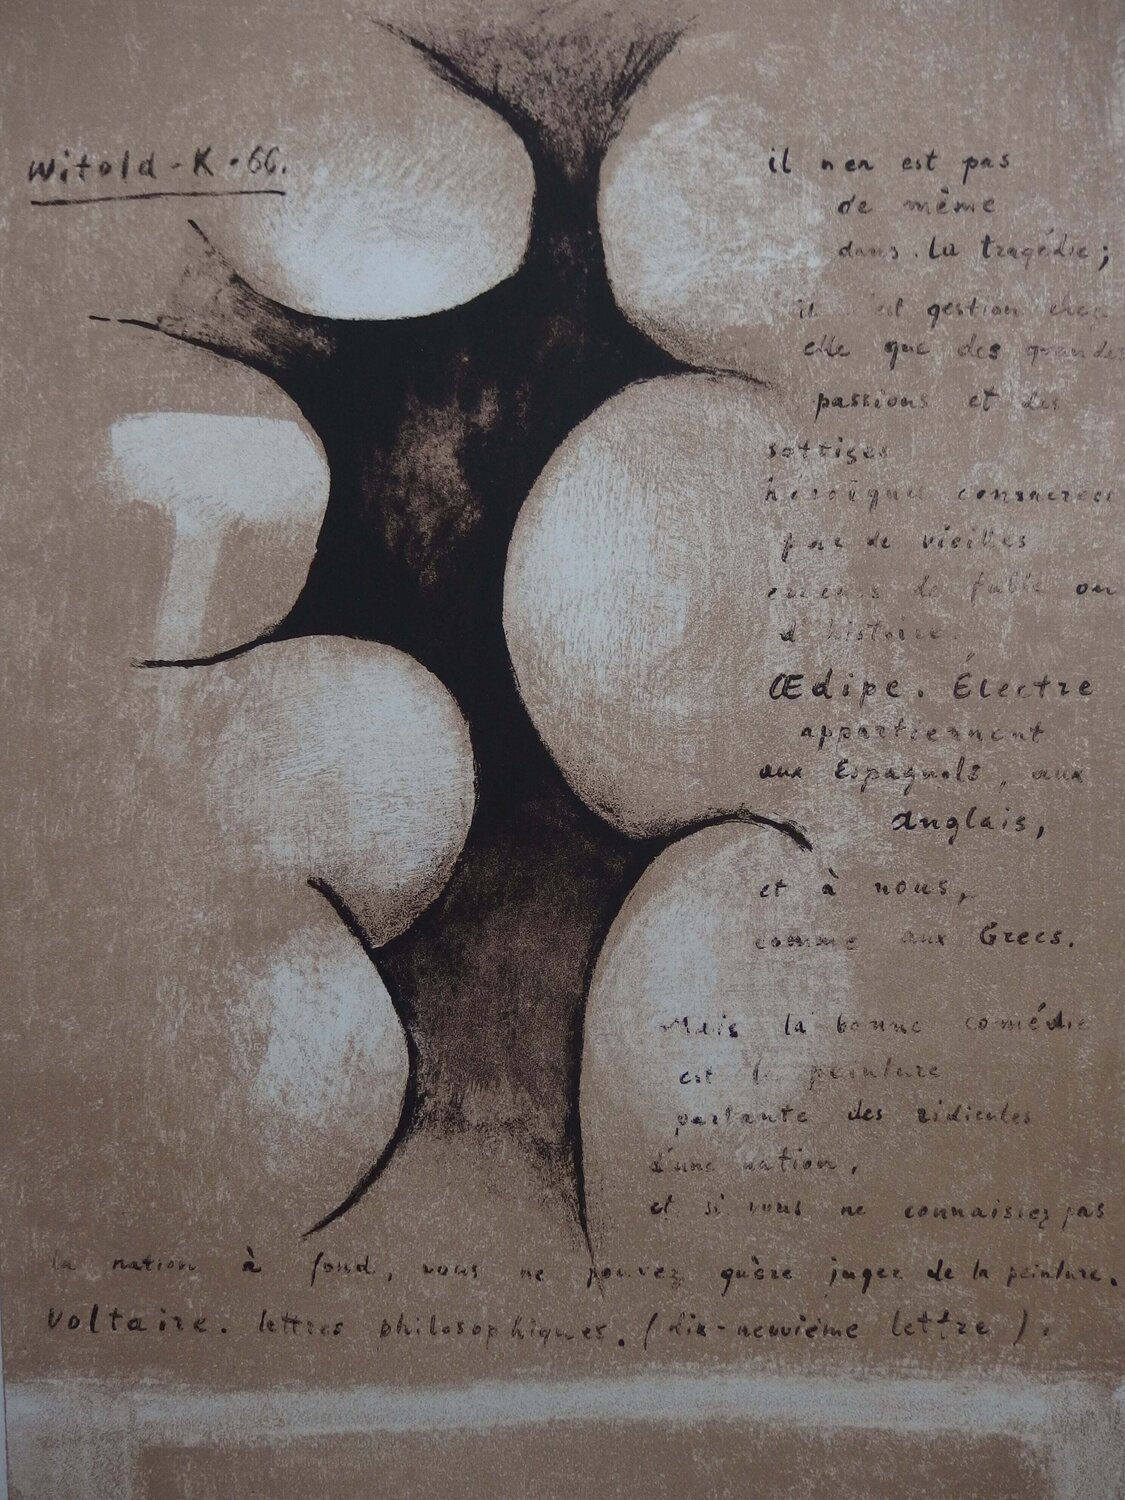 Witold-K.66.
il n en est pas
de même
dans la tragédie;
il est gestion chez
elle que des grandes
passions et des
sottises
consacrees
par de vieilles
de fable ou
d'histoire.
Œdipe. Électre
appartiennent
aux Espagnols, aux
Anglais,
et à nous,
comme aux Grecs.
Mais la bonne comédie
est la peinture
parlante des ridicules
d'une nation,
et si vous ne connaissez pas
la nation à fond, vous ne pouvez guère juger de la peinture.
Voltaire. lettres philosophiques. (dix-neuvième lettre).